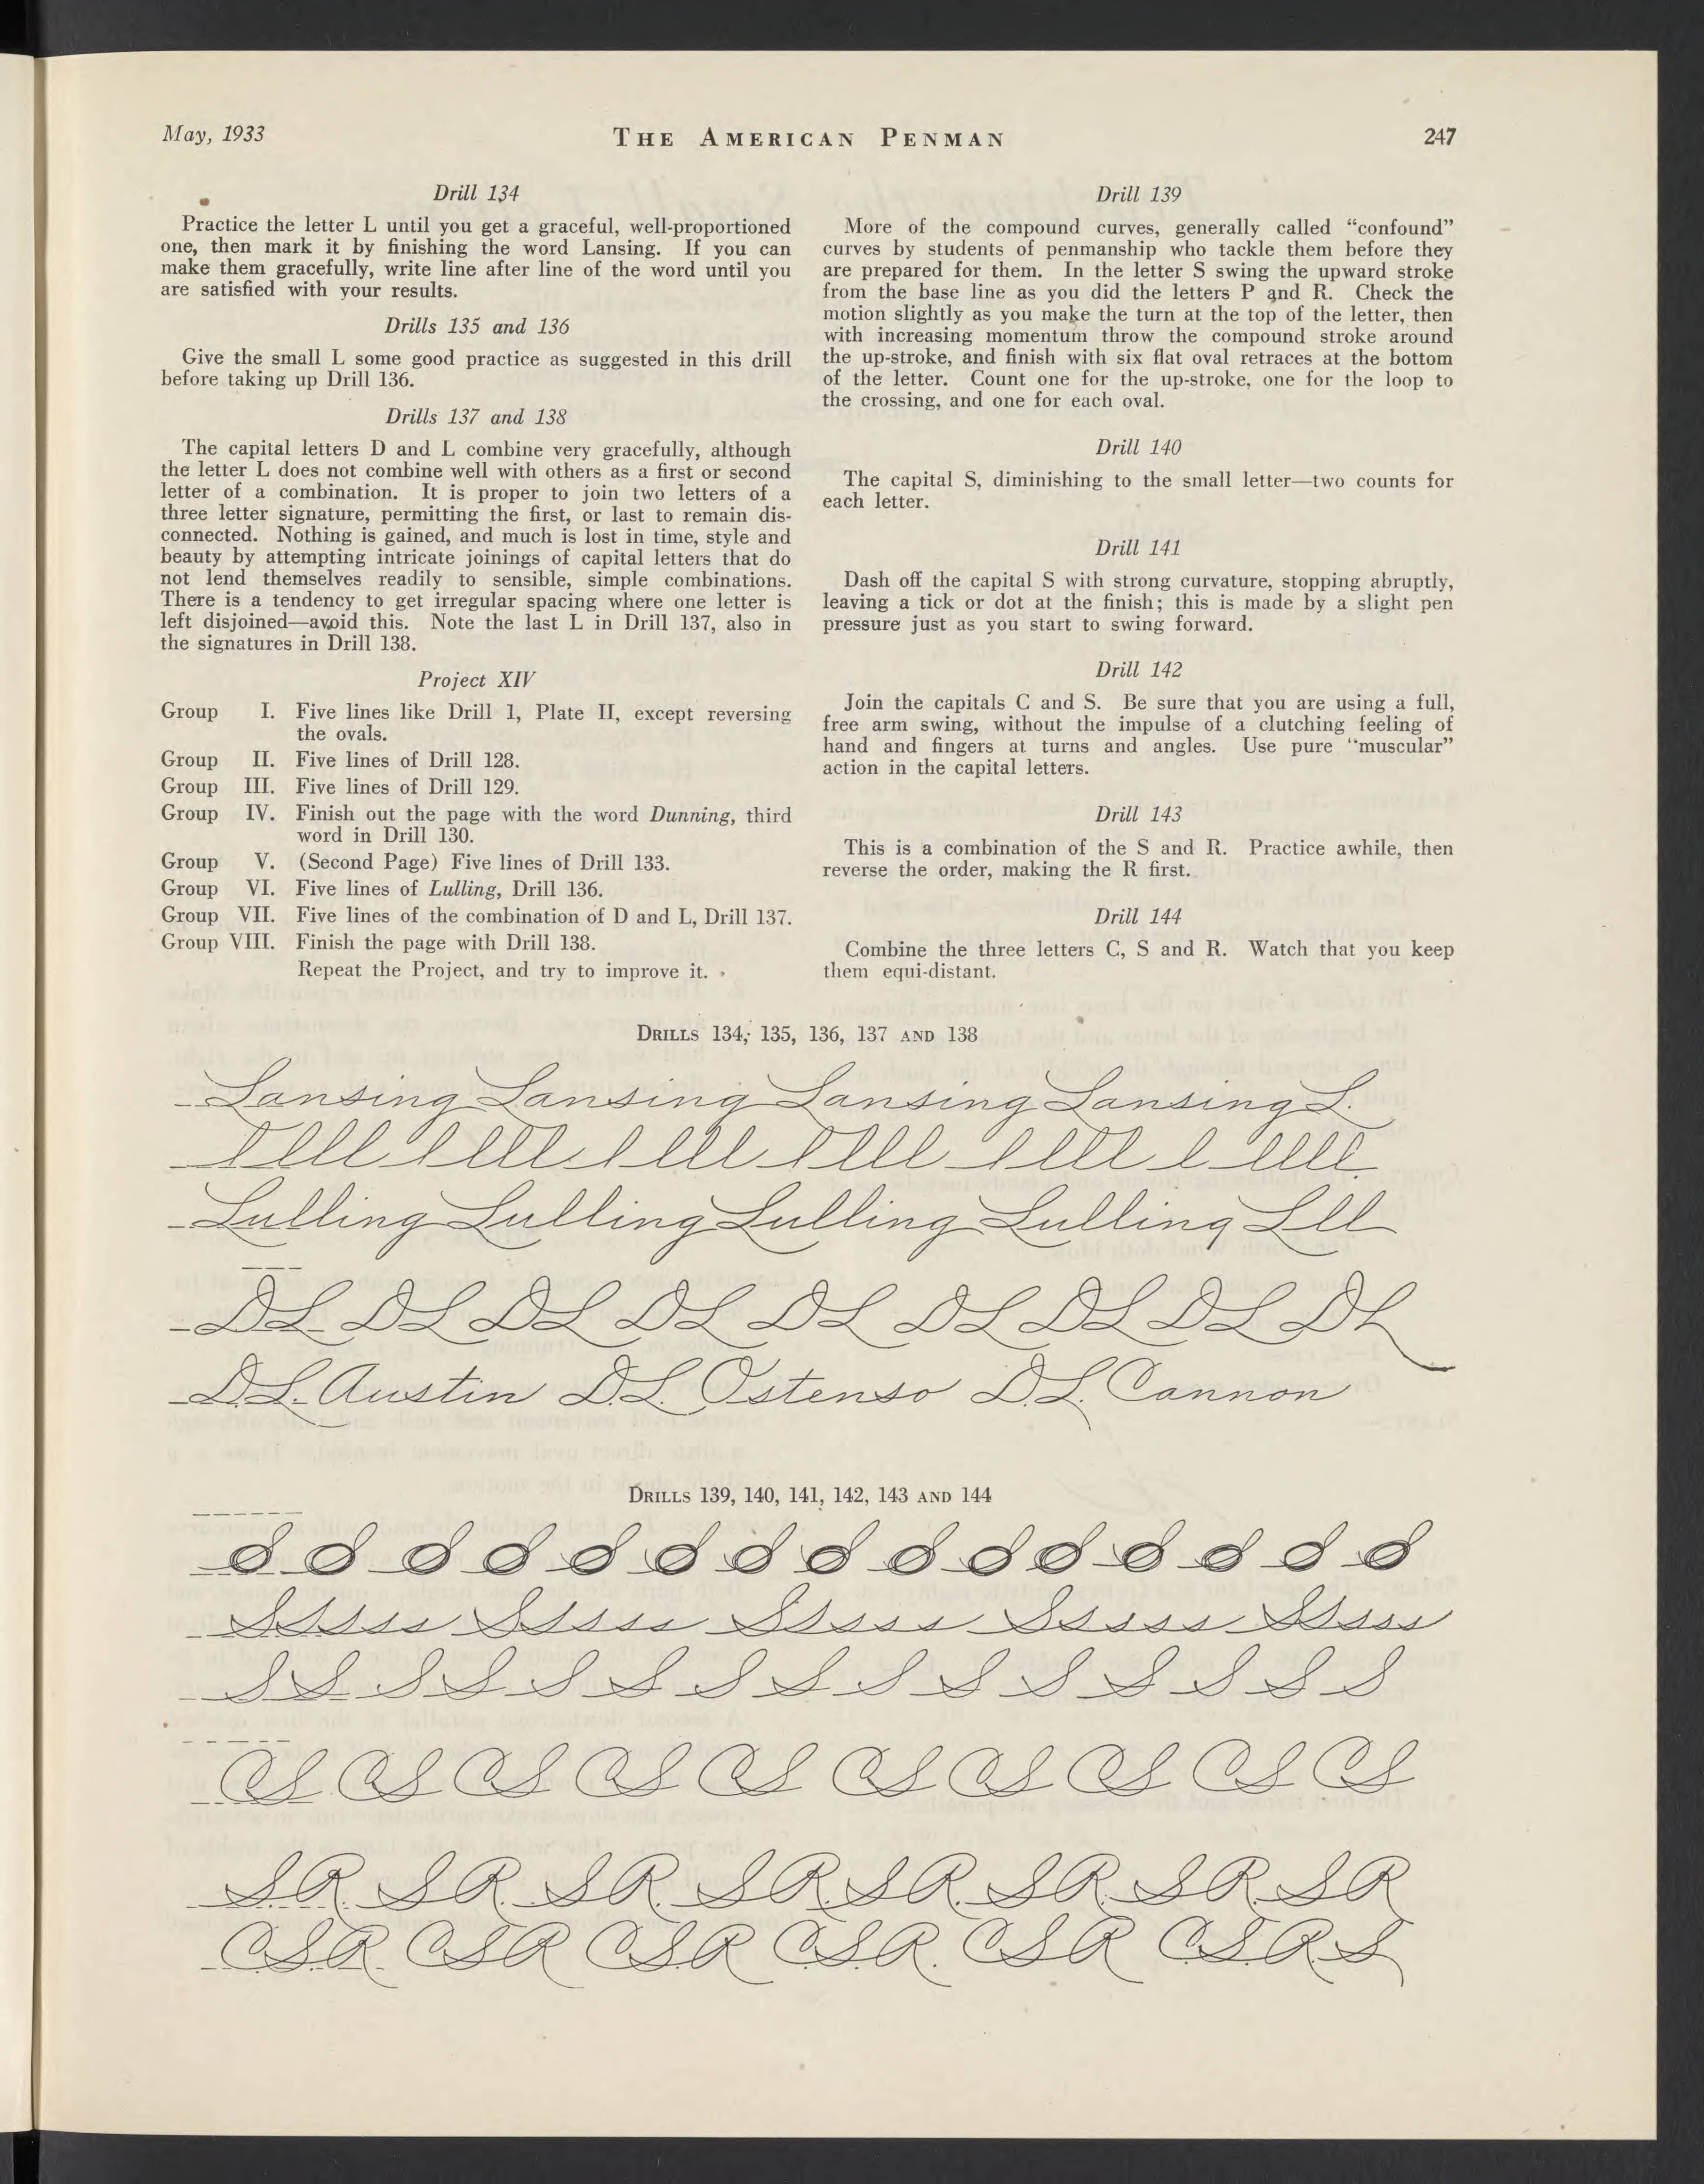 May, 1933
THE AMERICAN PENMAN
247
Drill 134
Practice the letter L until you get a graceful, well-proportioned
one, then mark it by finishing the word Lansing. If you can
make them gracefully, write line after line of the word until you
are satisfied with your results.
Drills 135 and 136
Give the small L some good practice as suggested in this drill
before taking up Drill 136.
Drills 137 and 138
The capital letters D and L combine very gracefully, although
the letter L does not combine well with others as a first or second
letter of a combination. It is proper to join two letters of a
three letter signature, permitting the first, or last to remain dis-
connected. Nothing is gained, and much is lost in time, style and
beauty by attempting intricate joinings of capital letters that do
not lend themselves readily to sensible, simple combinations.
There is a tendency to get irregular spacing where one letter is
left disjoined—avoid this. Note the last L in Drill 137, also in
the signatures in Drill 138.
Project XIV
Group I. Five lines like Drill 1, Plate II, except reversing
the ovals.
Group II. Five lines of Drill 128.
Group III. Five lines of Drill 129.
Group IV. Finish out the page with the word Dunning, third
word in Drill 130.
Group V. (Second Page) Five lines of Drill 133.
Group VI. Five lines of Lulling, Drill 136.
Group VII. Five lines of the combination of D and L, Drill 137.
Group VIII. Finish the page with Drill 138.
Repeat the Project, and try to improve it.
Drill 139
More of the compound curves, generally called “confound”
curves by students of penmanship who tackle them before they
are prepared for them. In the letter S swing the upward stroke
from the base line as you did the letters P and R. Check the
motion slightly as you make the turn at the top of the letter, then
with increasing momentum throw the compound stroke around
the up-stroke, and finish with six flat oval retraces at the bottom
of the letter. Count one for the up-stroke, one for the loop to
the crossing, and one for each oval.
Drill 140
The capital S, diminishing to the small letter—two counts for
each letter.
Drill 141
Dash off the capital S with strong curvature, stopping abruptly,
leaving a tick or dot at the finish; this is made by a slight pen
pressure just as you start to swing forward.
Drill 142
Join the capitals C and S. Be sure that you are using a full,
free arm swing, without the impulse of a clutching feeling of
hand and fingers at turns and angles. Use pure “muscular”
action in the capital letters.
Drill 143
This is a combination of the S and R. Practice awhile, then
reverse the order, making the R first.
Drill 144
Combine the three letters C, S and R. Watch that you keep
them equi-distant.
DRILLS 134, 135, 136, 137 AND 138
Lansing Lansing Lansing Lansing L.
l lll l lll l lll l lll l lll l llll
Lulling Lulling Lulling Lulling Lll
DL DL DL DL DL DL DL DL DL
D.L. Austin D.L. Ostenso D.L. Cannon
DRILLS 139, 140, 141, 142, 143 AND 144
S S S S S S S S S S S S S S S
Sssss Sssss Sssss Sssss Sssss
S S S S S S S S S S S S S S S
CS CS CS CS CS CS CS CS CS CS
SR SR SR SR SR SR SR SR
CSR CSR CSR CSR CSR CSRS